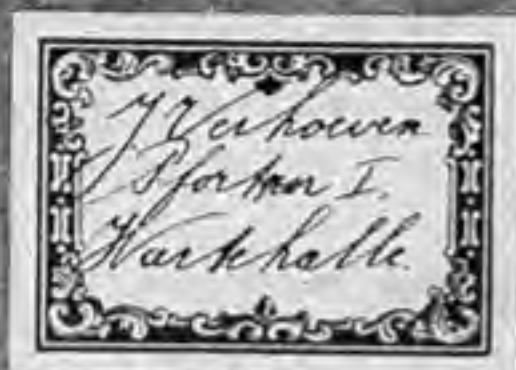 J Verhoeven
Pförtner I.
Wartehalle.